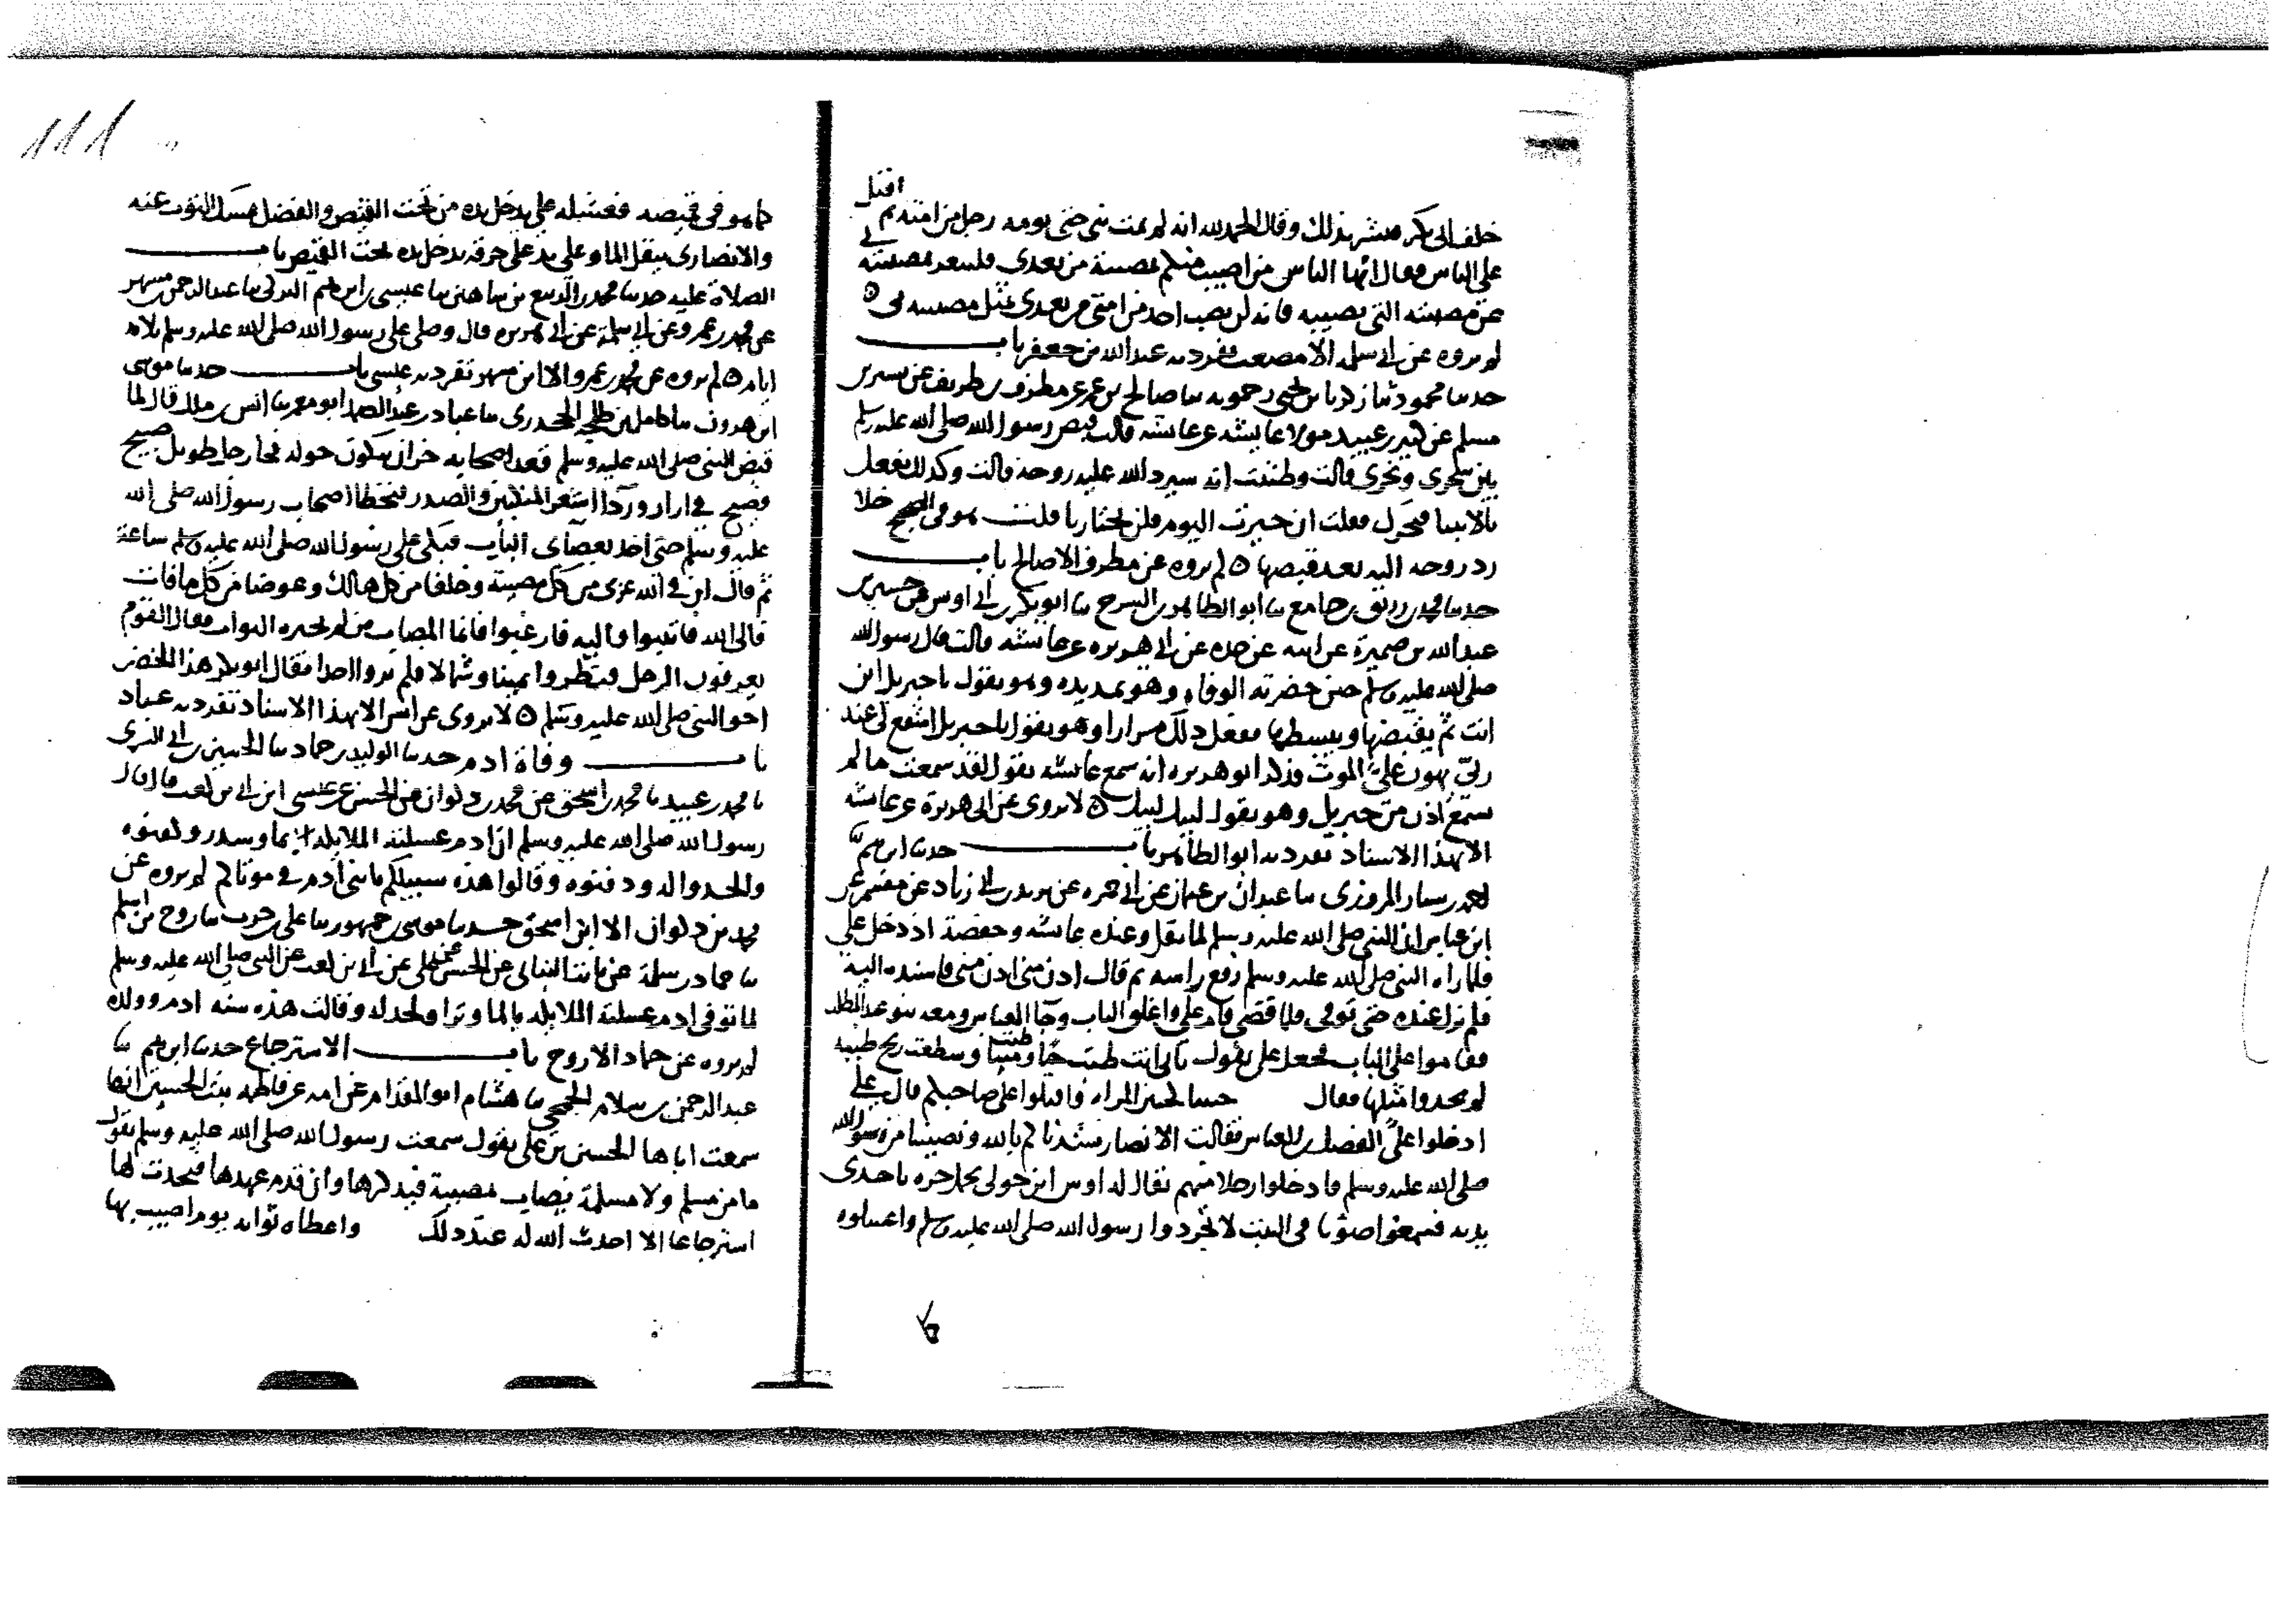 اقبل
خلف ابى بكر فبشر بذلك وقال الحمد لله انه لم يمت نبى حتى يومه رجل من امته ثم
على الناس فقال ايها الناس من اصيب منكم بمصيبة من بعدى فليتعز بمصيبته بى
عن مصيبته التى تصيبه فانه لن يصب احد من امتى من بعدى بمثل مصيبته بى ه
لم يروه عن ابى سلمه الا مصعب تفرد به عبد الله بن جعفر باب
حدثنا محمود ثنا زكريا بن يحيى زحمويه ثنا صالح بن عمر عن مطرف بن طريف عن بشير بن
مسلم عن كثير بن عبيد مولا عايشه عن عايشه قالت قبض رسول الله صلى الله عليه وسلم
بين سحرى ونحرى قالت وظننت انه سيرد الله عليه روحه قالت وكذلك يفعل
بالانبيا فتحرك فقلت ان خيرت اليوم فلن تختارنا قلت هو فى الصحيح خلا
رد روحه اليه بعد قبضها ه لم يروه عن مطرف الا صالح باب
حدثنا محمد بن رزيق بن جامع ثنا ابو الطاهر بن السرح ثنا ابو بكر بن ابى اوس عن حسين بن
عبد الله بن ضميرة عن ابيه عن جده عن ابى هريره عن عايشه قالت قال رسول الله
صلى الله عليه وسلم حين حضرته الوفاه وهو يمد يده وهو يقول يا جبريل اين
انت ثم يقبضها ويبسطها ففعل ذلك مرارا وهو يقول يا جبريل اشفع لى عند
ربى يهون على الموت فذكر ابو هريره انه سمع عايشه تقول لقد سمعت ما لم
تسمع اذن من جبريل وهو يقول لبيك لبيك ه لا يروى عن ابى هريرة عن عايشه
الا بهذا الاسناد تفرد به ابو الطاهر باب حدثنا ابرهيم ثنا
احمد بن سيار المروزى ثنا عبدان بن عثمان عن ابى حمزه عن يزيد بن ابى زياد عن مقسم عن
ابن عباس ان النبى صلى الله عليه وسلم لما ثقل وعنده عايشه وحفصة اذ دخل على
فلما راه النبى صلى الله عليه وسلم رفع راسه ثم قال ادن منى ادن منى فاسنده اليه
فلم يزل عنده حتى توفى فلما قضى قام على واغلق الباب وجا العباس ومعه بنو عبد المطلب
فقاموا على الباب فجعل على يقول بابى انت طبت حيا وطبت ميتا وسطعت ريح طيبه
لم يجدوا مثلها فقال المراه واقبلوا على صاحبكم قال على
ادخلوا على الفضل بن العباس فقالت الانصار نشدناكم بالله ونصيبنا من رسول الله
صلى الله عليه وسلم فادخلوا رجلا منهم يقال له اوس ابن خولى يحمل جره باحدى
يديه فسمعوا صوتا فى البيت لا تجردوا رسول الله صلى الله عليه وسلم واغسلوه
كما هو فى قميصه فغسله على يدخل يده من تحت القميص والفضل يمسك الثوب عنه
والانصارى ينقل الما وعلى يد على خرقه يدخل يده تحت القميص باب
الصلاة عليه حدثنا محمد بن الربيع بن شاهين ثنا عيسى بن ابرهيم البركى ثنا عبد الرحمن بن مسهر
عن محمد بن عمرو عن ابى سلمة عن ابى هريره قال وصلى على رسول الله صلى الله عليه وسلم ثلاثه
ايام ه لم يروه عن محمد بن عمرو الا ابن مسهر تفرد به عيسى باب حدثنا موسى
ابن هرون ثنا كامل بن طلحه الجحدرى ثنا عباد بن عبد الصمد ابو معمر ثنا انس بن ملك قال لما
قبض النبى صلى الله عليه وسلم قعد اصحابه حزان يبكون حوله فجا رجل طويل صبيح
فصيح فى ازار وردا اشعر المنكبين والصدر فتخطا اصحاب رسول الله صلى الله
عليه وسلم حتى اخذ بعضادتى الباب فبكى على رسول الله صلى الله عليه وسلم ساعة
ثم قال ان فى الله عزى من كل مصيبة وخلفا من كل هالك وعوضا من كل ما فات
فالى الله فانيبوا واليه فارغبوا فانما المصاب من لم يجبره الثواب فقال القوم
تعرفون الرجل فنظروا يمينا وشمالا فلم يروا احدا فقال ابو بكر هذا الخضر
اخو النبى صلى الله عليه وسلم ه لا يروى عن انس الا بهذا الاسناد تفرد به عباد
باب وفاة ادم حدثنا الوليد بن حماد ثنا الحسين بن ابى السرى
ثنا محمد بن عبيد ثنا محمد بن اسحق عن محمد بن ذكوان عن الحسن عن عتى عن ابى بن كعب قال قال
رسول الله صلى الله عليه وسلم ان ادم غسلته الملايكه بما وسدر وكفنوه
والحدوا له ودفنوه وقالوا هذه سبيلكم يا بنى ادم فى موتاكم لم يروه عن
محمد بن ذكوان الا ابن اسحق حدثنا موسى بن جمهور ثنا على بن حرب ثنا روح بن اسلم
ثنا حماد بن سلمة عن ثابت البنانى عن الحسن عن عتى عن ابى بن كعب عن النبى صلى الله عليه وسلم
لما توفى ادم غسلته الملايكه بالما وترا ولحد له وقالت هذه سنه ادم وولده
لم يروه عن حماد الا روح باب الاسترجاع حدثنا ابرهيم ثنا
عبد الرحمن بن سلام الجمحى ثنا هشام ابو المقدام عن امه عن فاطمه بنت الحسين انها
سمعت اباها الحسين بن على يقول سمعت رسول الله صلى الله عليه وسلم يقول
ما من مسلم ولا مسلمة يصاب بمصيبة فيذكرها وان قدم عهدها فيحدث لها
استرجاعا الا احدث الله له عند ذلك واعطاه ثوابه يوم اصيب بها